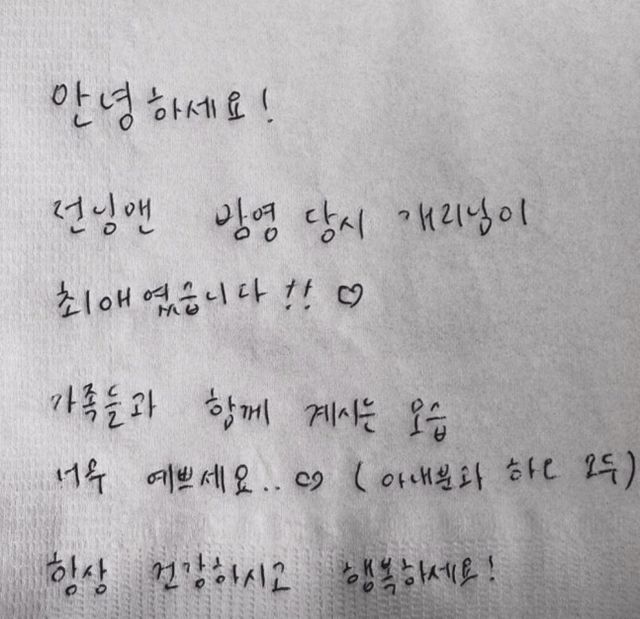 안녕하세요!
런닝맨 방영 당시 개리님이
최애였습니다!! ♡
가족들과 함께 계시는 모습
너무 예쁘세요.. ♡ (아내분과 하오 모두)
항상 건강하시고 행복하세요!